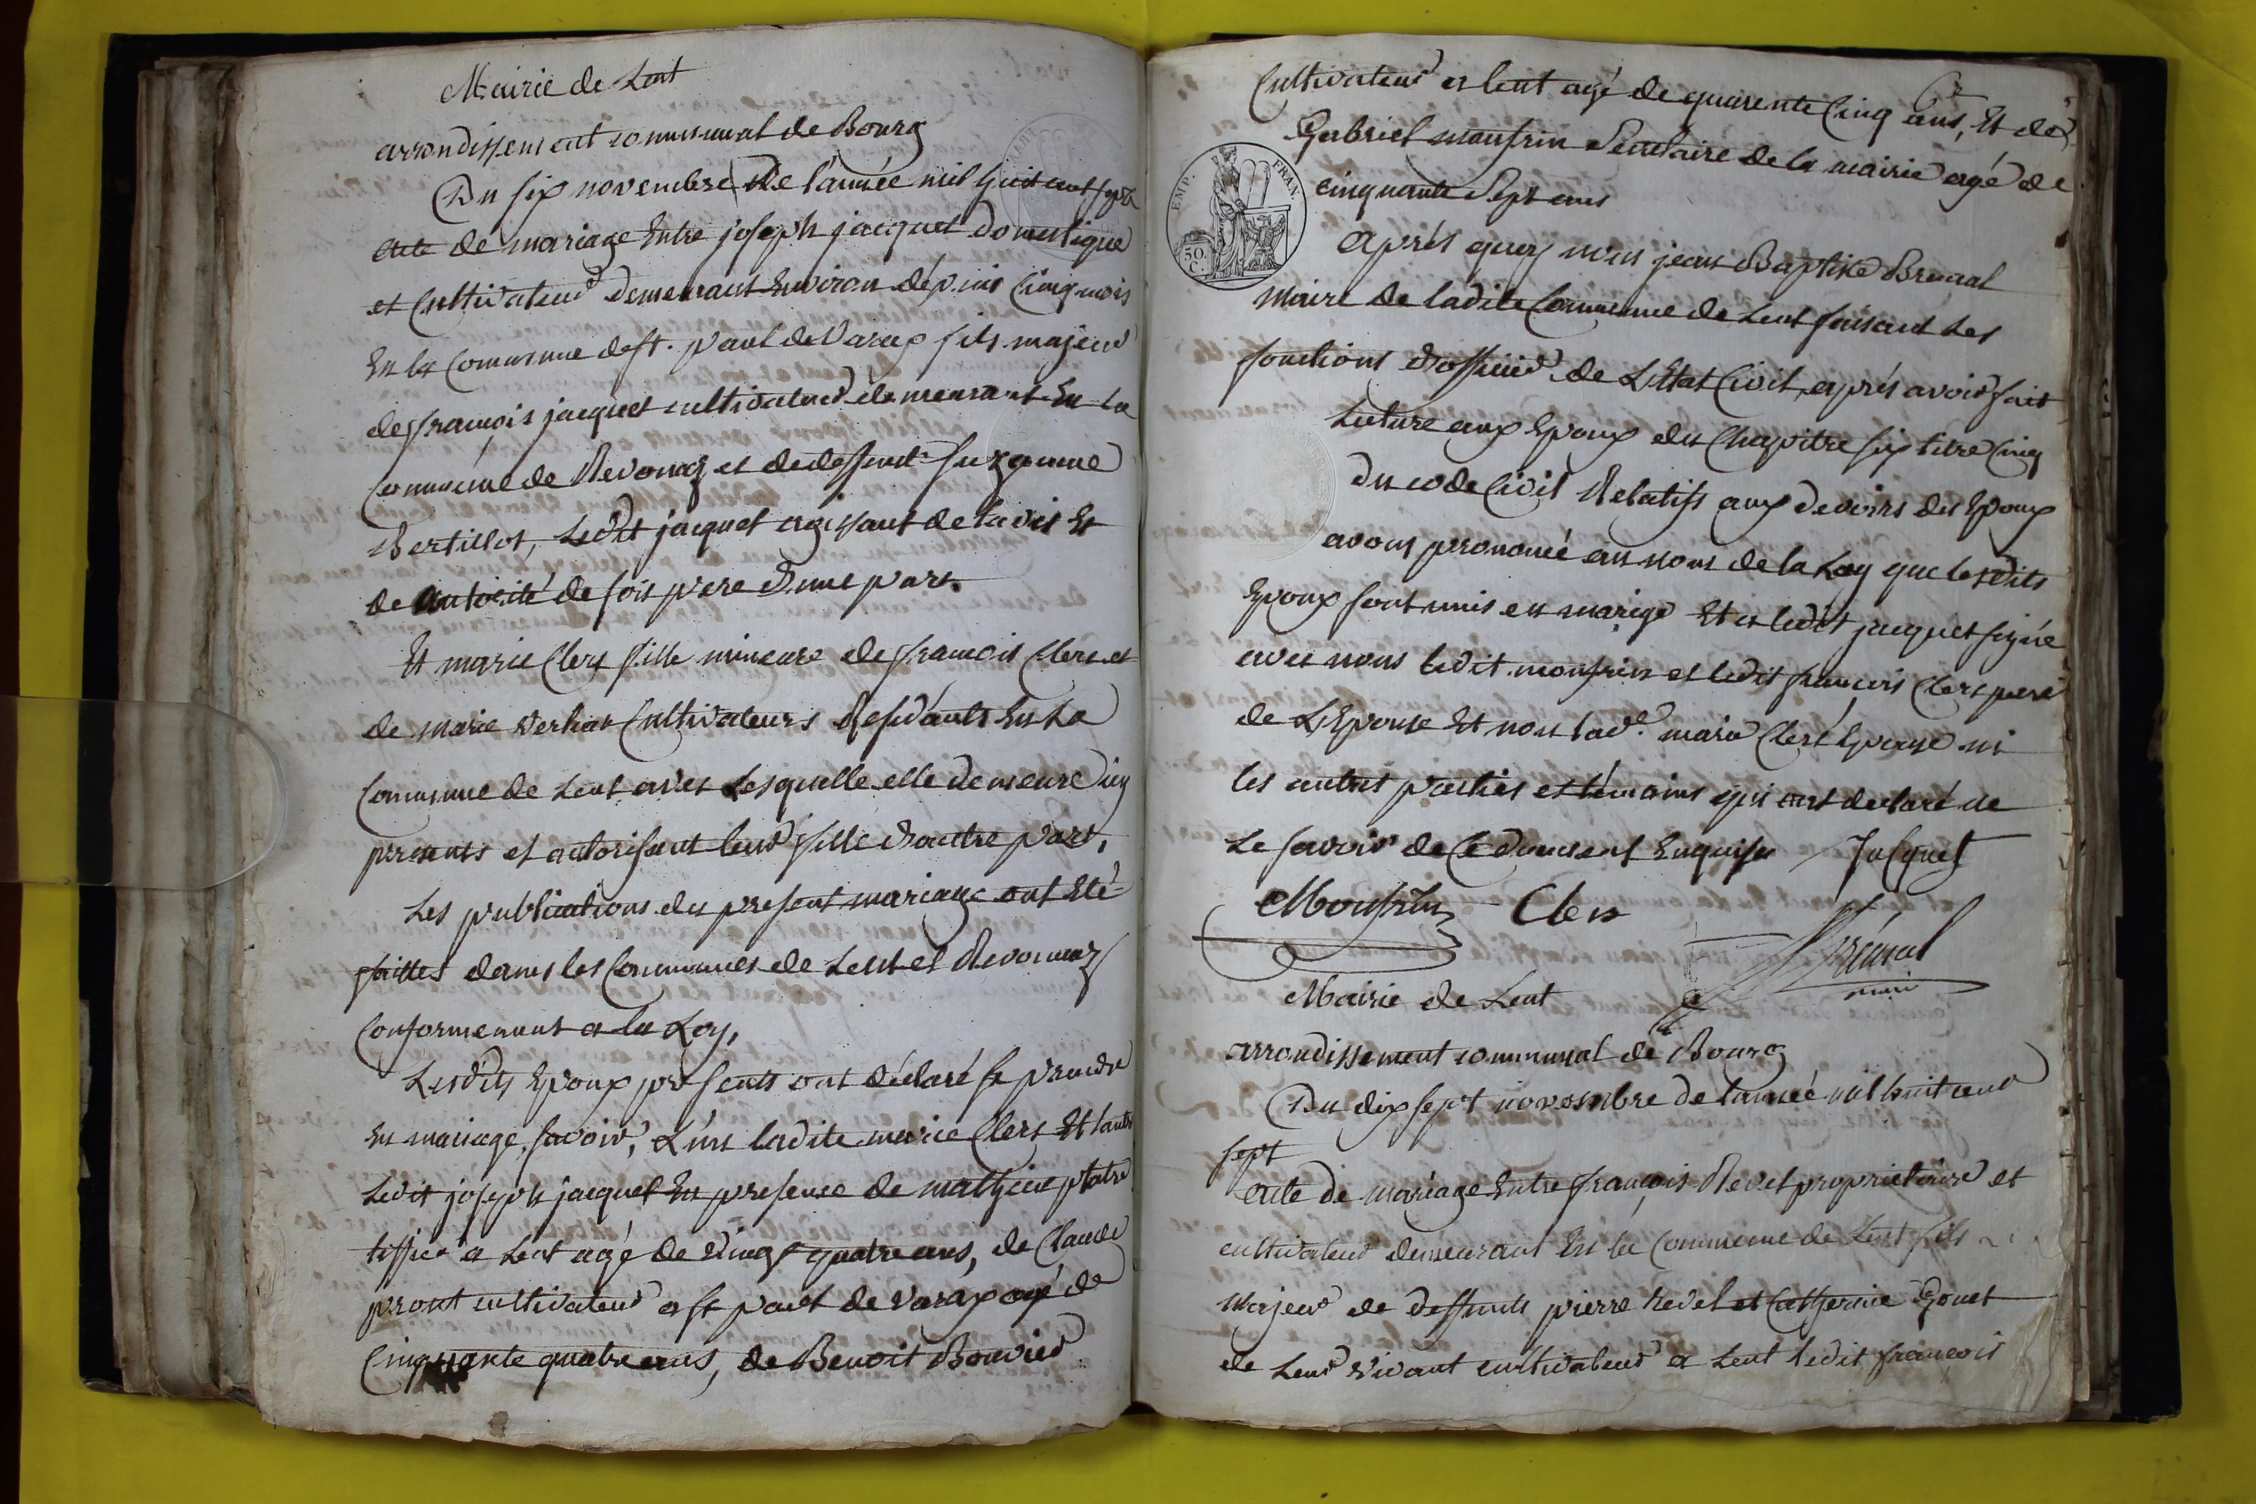 Mairie de Lent
arrondissement communal de Bourg
Du six novembre de l'année mil huit cent sept
acte de mariage Entre joseph jacquet domestique
et Cultivateur demeurant Environ dépuis Cinq mois
En la Commune de St. paul de Varax fils majeur
de françois jacquet cultivateur demeurant En la
Commune de Revonnaz et de deffunte Suzanne
Bertillot, Ledit jacquet agissant de lavis Et
de autorité de son pere d'une part.
Et marie Clerc fille mineure de francois Clerc et
de marie Verhas Cultivateurs Residants En La
Commune de Lent avec Lesquelle elle demeure Icy
presents et autorisent leur fille d'autre part,
Les publications du present mariage ont Eté
faittes dans les Communes de Lent et Revonnaz
Conformement a la Loy,
Lesdits Epoux presents ont déclaré se prendre
En mariage, savoir, L'un ladite marie Clerc Et lautre
Ledit joseph jacquet En presence de mathieu platre
tissier a Lent agé de vingt quatre ans, de Claude
pront cultivateur a St paul de varax agé de
Cinquante quatre ans, de Benoit Bouvier
62
Cultivateur a lent agé de quarente Cinq ans, Et de
Gabriel monfrin Secretaire de la mairie agé de
cinquante Sept ans
EMP. FRAN.
50. C.
Après quoy nous jean Baptiste Brenal
Maire de ladite Commune de Lent faisant Les
fonctions d'officier de L'Etat Civil, après avoir fait
Lecture aux Epoux du Chapitre six titre Cinq
du code Civil Relatifs aux devoirs des Epoux
avons prononcé au nom de la Loy que lesdits
Epoux sont unis en mariage Et a ledit jacquet signé
avec nous ledit monfrin et ledit françois Clerc pere
de L'Epouse Et non lade. marie Clerc Epouse ni
les autres parties et témoins qui ont declaré ne
Le savoir de Ce duement Enquis Jacquet
Monfrin Clerc
Brénal
maire
Mairie de Lent
arrondissement communal de Bourg
Du dix sept novembre de l'année mil huit cent
sept
acte de mariage Entre françois Revel propriétaire et
cultivateur demeurant En la Commune de Lent fils
Majeur de deffunts pierre Revel et Catherine Gonet
de Leur vivant cultivateur a Lent ledit françois